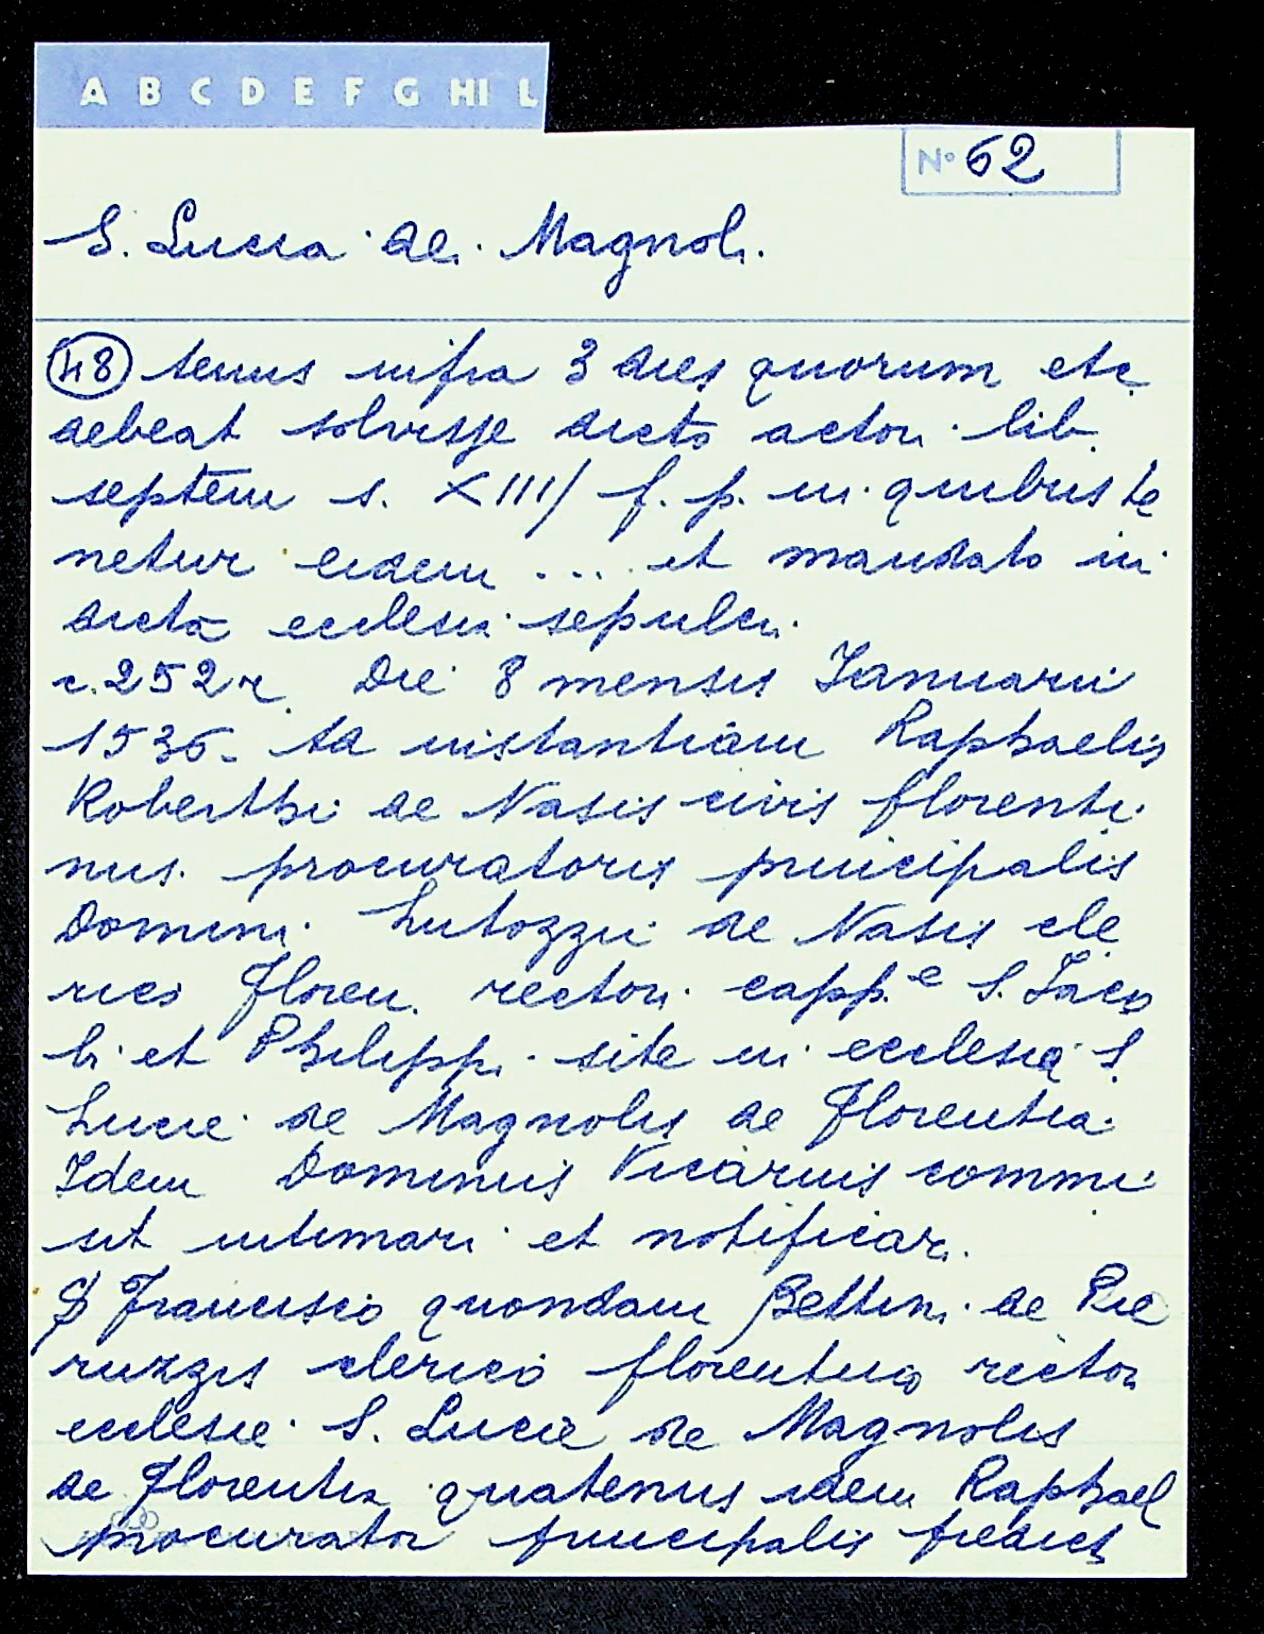 A B C D E F G HI L
N° 62
S. Lucia dei Magnoli
(48) tenus infra 3 dies quorum etc
debeat solvisse dicto actori lib
septem s. XIII f. p. in quibus te
netur eidem ... et mandato in
dicta ecclesia sepulcri
c. 252 r. Die 8 mensis Ianuarii
1536. Ad instantiam Raphaelis
Roberthi de Nasis civis florenti
nus procuratoris principalis
Domini Lutozzii de Nasis cle
rico Floren. rectori capp.e S. Iaco
bi et Philippi site in ecclesia S.
Lucie de Magnolis de Florentia
Idem Dominus Vicarius commi
sit intimari et notificari
Francisco quondam Bettini de Pie
ruzzis clerico florentino rectori
ecclesie S. Lucie de Magnolis
de Florentia quatenus idem Raphael
procurator principalis predicti